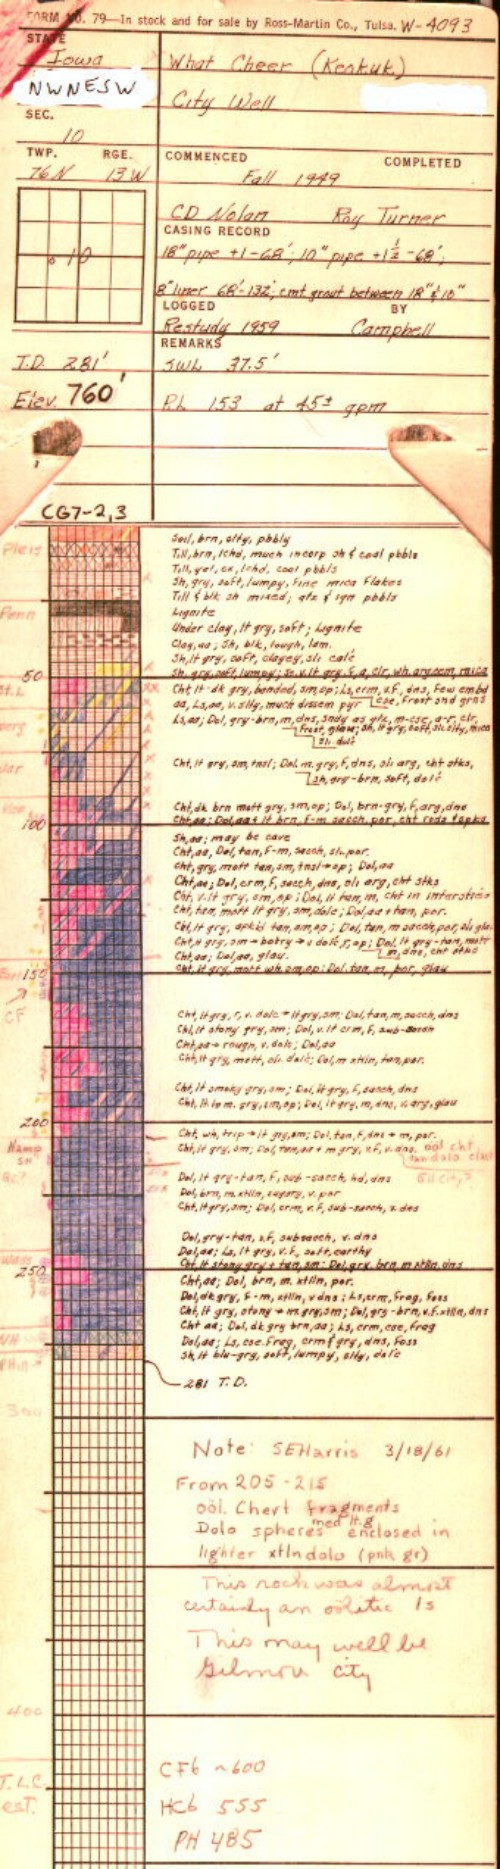 FORM NO. 79—In stock and for sale by Ross-Martin Co., Tulsa. W-4093
STATE
Iowa
What Cheer (Keokuk)
NWNESW
City Well
SEC.
10
TWP. RGE.
76N 13W
COMMENCED COMPLETED
Fall 1949
CD Nolan Roy Turner
CASING RECORD
18" pipe +1-68'; 10" pipe +1½-68';
8" liner 68'-132'; cmt grout between 18" & 10"
LOGGED BY
Restudy 1959 Campbell
REMARKS
T.D. 281'
SWL 37.5'
Elev. 760'
PL 153 at 45± gpm
CG7-2,3
Pleis
Soil, brn, slty, pbbly
Till, brn, lchd, much incorp sh & coal pbbls
Till, yel, ox, lchd, coal pbbls
Sh, gry, soft, lumpy, fine mica flakes
Till & blk sh mixed; qtz & ign pbbls
Penn
Lignite
Under clay, lt gry, soft; Lignite
Clay, aa; Sh, blk, tough, lam.
Sh, lt gry, soft, clayey, sli calc
50
St.L
Cht, lt-dk gry, banded, sm, op; Ls, crm, v.f., dns, few embd
cse, frost snd grns
aa, Ls, aa, v. slty, much dissem pyr
Ls, aa; Dol, gry-brn, m, dns, sndy as qtz, m-cse, a-r, clr,
sli dolc
Cht, lt gry, sm, tnsl; Dol, m. gry, f, dns, sli arg, cht stks,
Sh, gry-brn, soft, dolc
Cht, dk brn mott gry, sm, op; Dol, brn-gry, f, arg, dns
100
Sh, aa; may be cave
Cht, aa, Dol, tan, f-m, sacch, sli. por.
Cht, gry, mott tan, sm, tnsl→op; Dol, aa
Cht, aa; Dol, crm, f, sacch, dns, sli arg, cht stks
Cht, v. lt gry, sm, op; Dol, lt tan, m, cht in interstices
Cht, tan, mott lt gry, sm, dolc; Dol, aa + tan, por.
Cht, aa; Dol, aa, glau.
m, dns, cht stks
150
Cht, lt gry, mott wh, sm, op; Dol, tan, m, por, glau
CF
Cht, lt gry, r, v. dolc→lt gry, sm; Dol, tan, m, sacch, dns
Cht, lt stony gry, sm; Dol, v. lt crm, f, sub-sacch
Cht, aa→rough, v. dolc; Dol, aa
Cht, lt gry, mott, sli dolc; Dol, m xtlln, tan, por.
Cht, lt smoky gry, sm; Dol, lt gry, f, sacch, dns
200
Cht, wh, trip→lt gry, sm; Dol, tan, f, dns→m, por.
Hamp
Dol, lt gry-tan, f, sub-sacch, hd, dns
Dol, brn, m. xtlln, sugary, v. por
Cht, lt gry, sm; Dol, crm, v.f, sub-sacch, v. dns
Dol, gry-tan, v.f, subsacch, v. dns
Dol, aa; Ls, lt gry, v.f, soft, earthy
250
Cht, lt stony gry + tan, sm; Dol, gry brn, m xtlln, dns
Cht, aa; Dol, brn, m. xtlln, por.
Dol, dk gry, f-m, xtlln, v dns; Ls, crm, frag, foss
Cht, lt gry, stony→m gry, sm; Dol, gry-brn, v.f. xtlln, dns
Cht aa; Dol, dk gry brn, aa; Ls, crm, cse, frag
Dol, aa; Ls, cse frag, crm & gry, dns, foss
Sh, lt blu-gry, soft, lumpy, slty, dolc
281 T.D.
300
Note: SEHarris 3/18/61
From 205-215
oöl. Chert fragments
med lt.g
Dolo spheres enclosed in
lighter xtlndolo (pnk gr)
This rock was almost
certainly an oölitic ls
This may well be
Gilmore city
400
CF6 ~600
T.L.C.
est.
HC6 555
PH 485